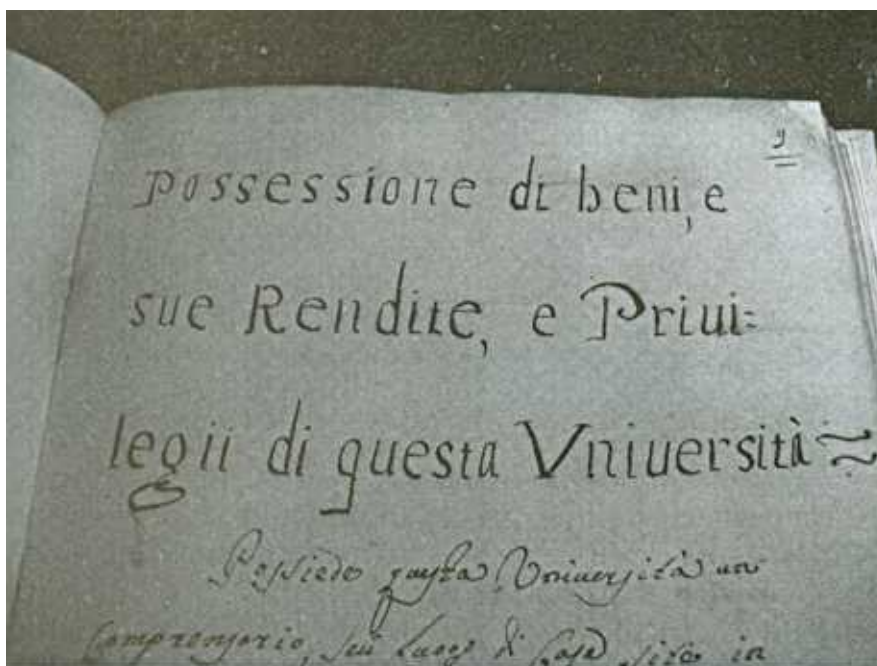 9
possessione di beni, e
sue Rendite, e Priui=
legii di questa Vniuersità
Possiede questa Vniuersità un
Comprensorio, seu Luogo di Case site in